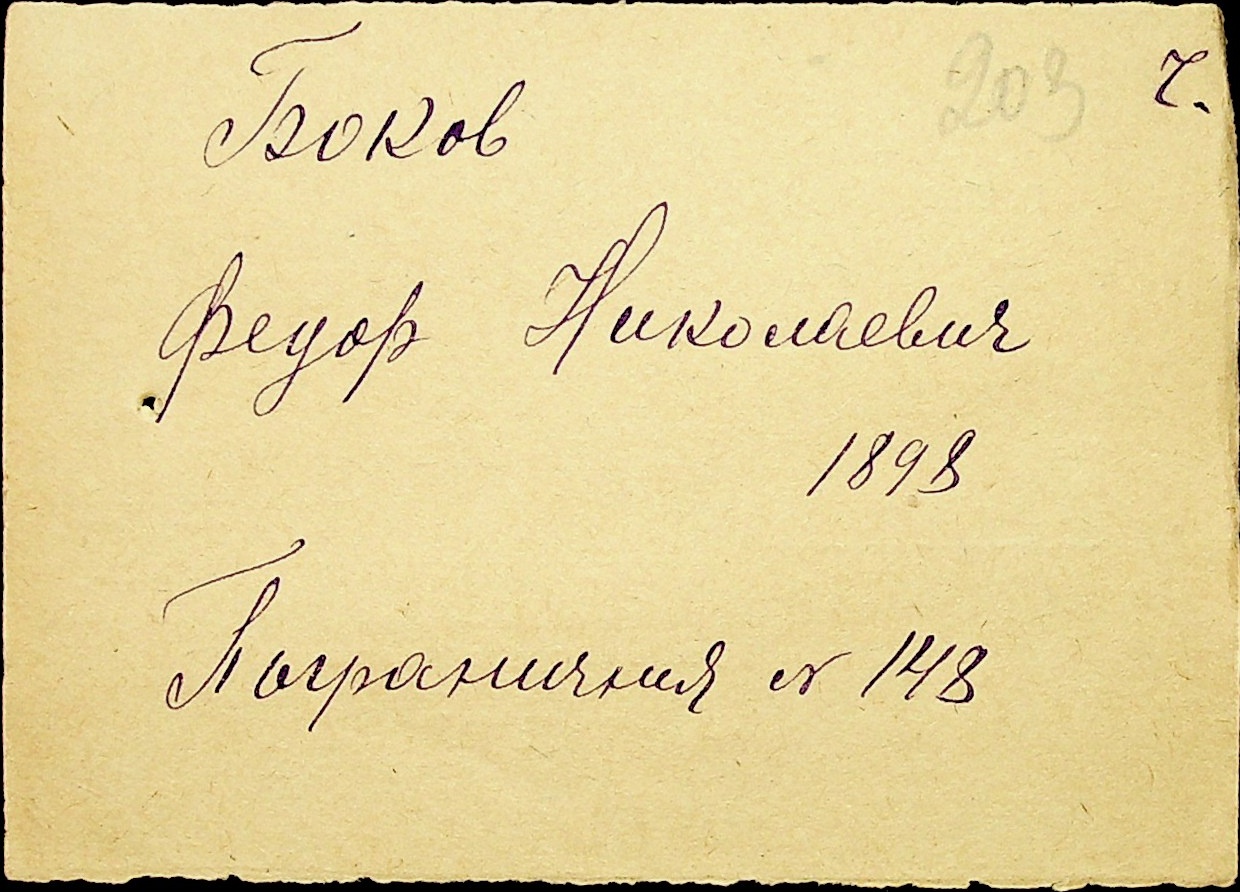 203
Боков
Федор Николаевич
1898
Пограничная № 148